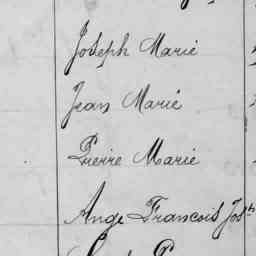 Joseph Marie
Jean Marie
Pierre Marie
Ange Francois Jos^h